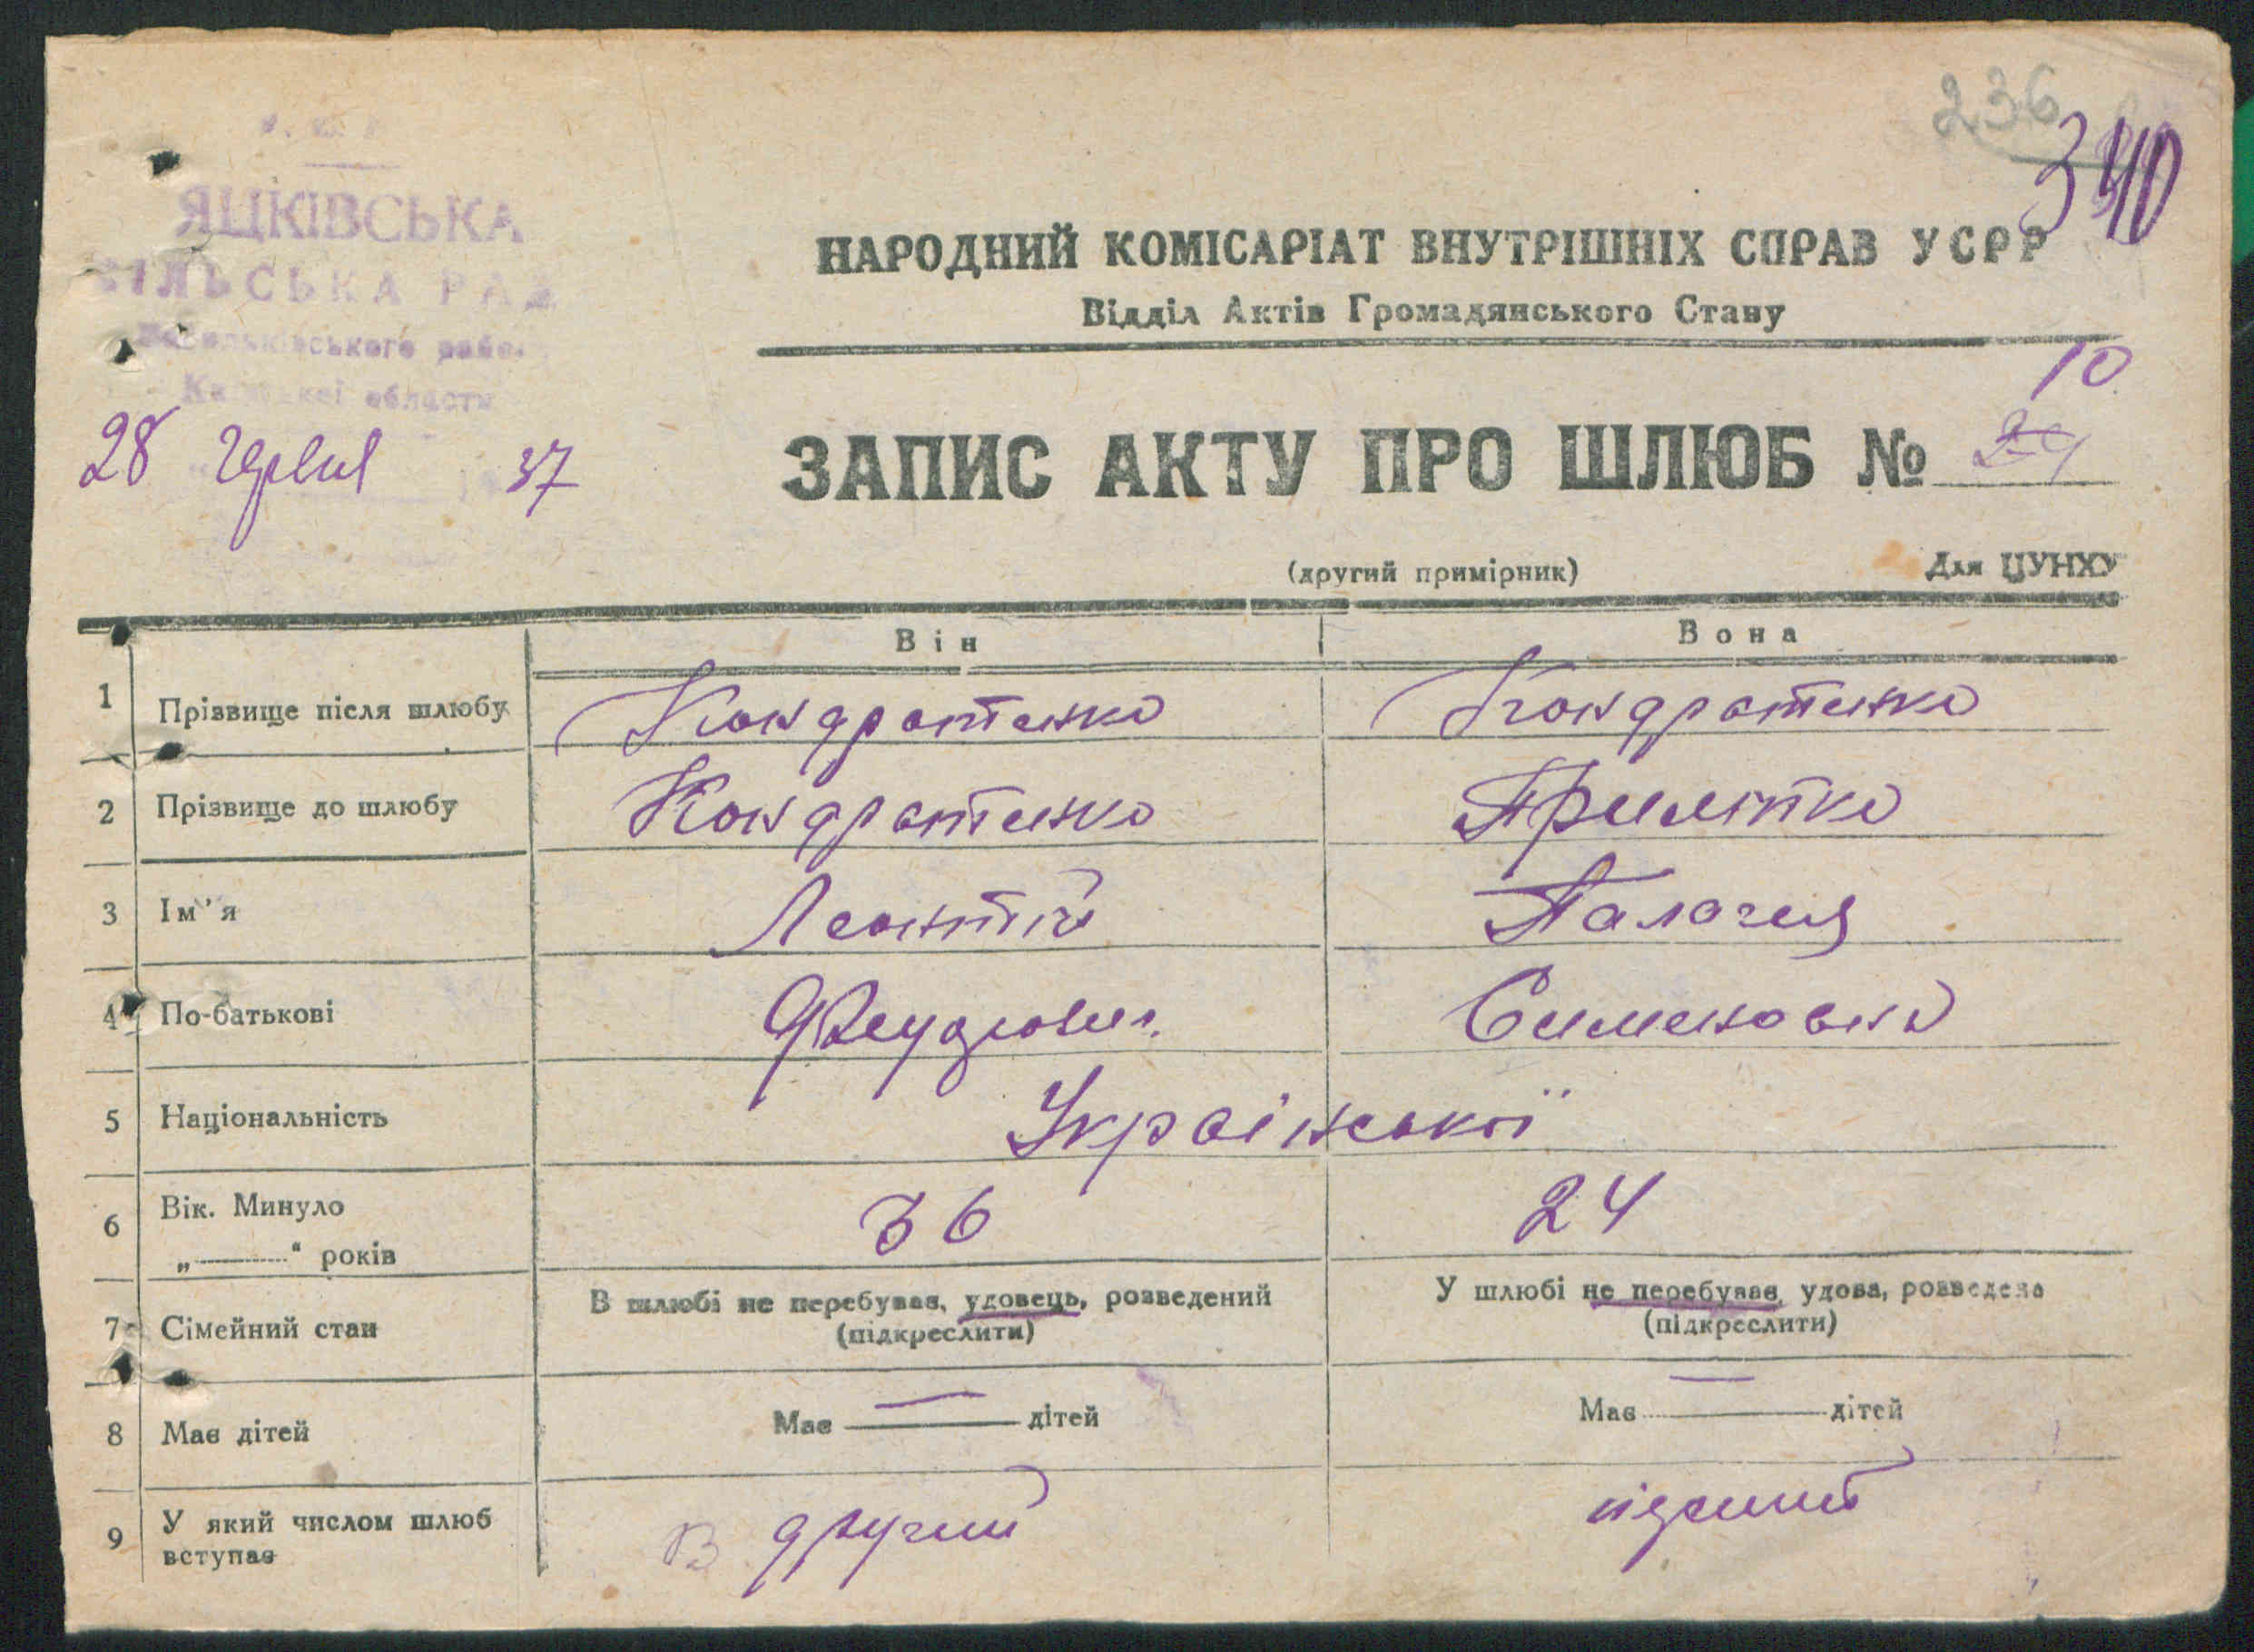 236
340
ЯЦКІВСЬКА
СІЛЬСЬКА РАДА
області
28 червня 37
НАРОДНИЙ КОМІСАРІАТ ВНУТРІШНІХ СПРАВ УСРР
Відділ Актів Громадянського Стану
10
ЗАПИС АКТУ ПРО ШЛЮБ №
(другий примірник) Для ЦУНХУ
Він Вона
1 Прізвище після шлюбу Кондратенко Кондратенко
2 Прізвище до шлюбу Кондратенко
3 Ім'я Леонтій Палагея
4 По-батькові Сименовна
5 Національність Української
6 Вік. Минуло 36 24
„ " років
7 Сімейний стан В шлюбі не перебував, удовець, розведений У шлюбі не перебував, удова, розведена
(підкреслити) (підкреслити)
8 Має дітей Має — дітей Має — дітей
9 У який числом шлюб вступає В другий